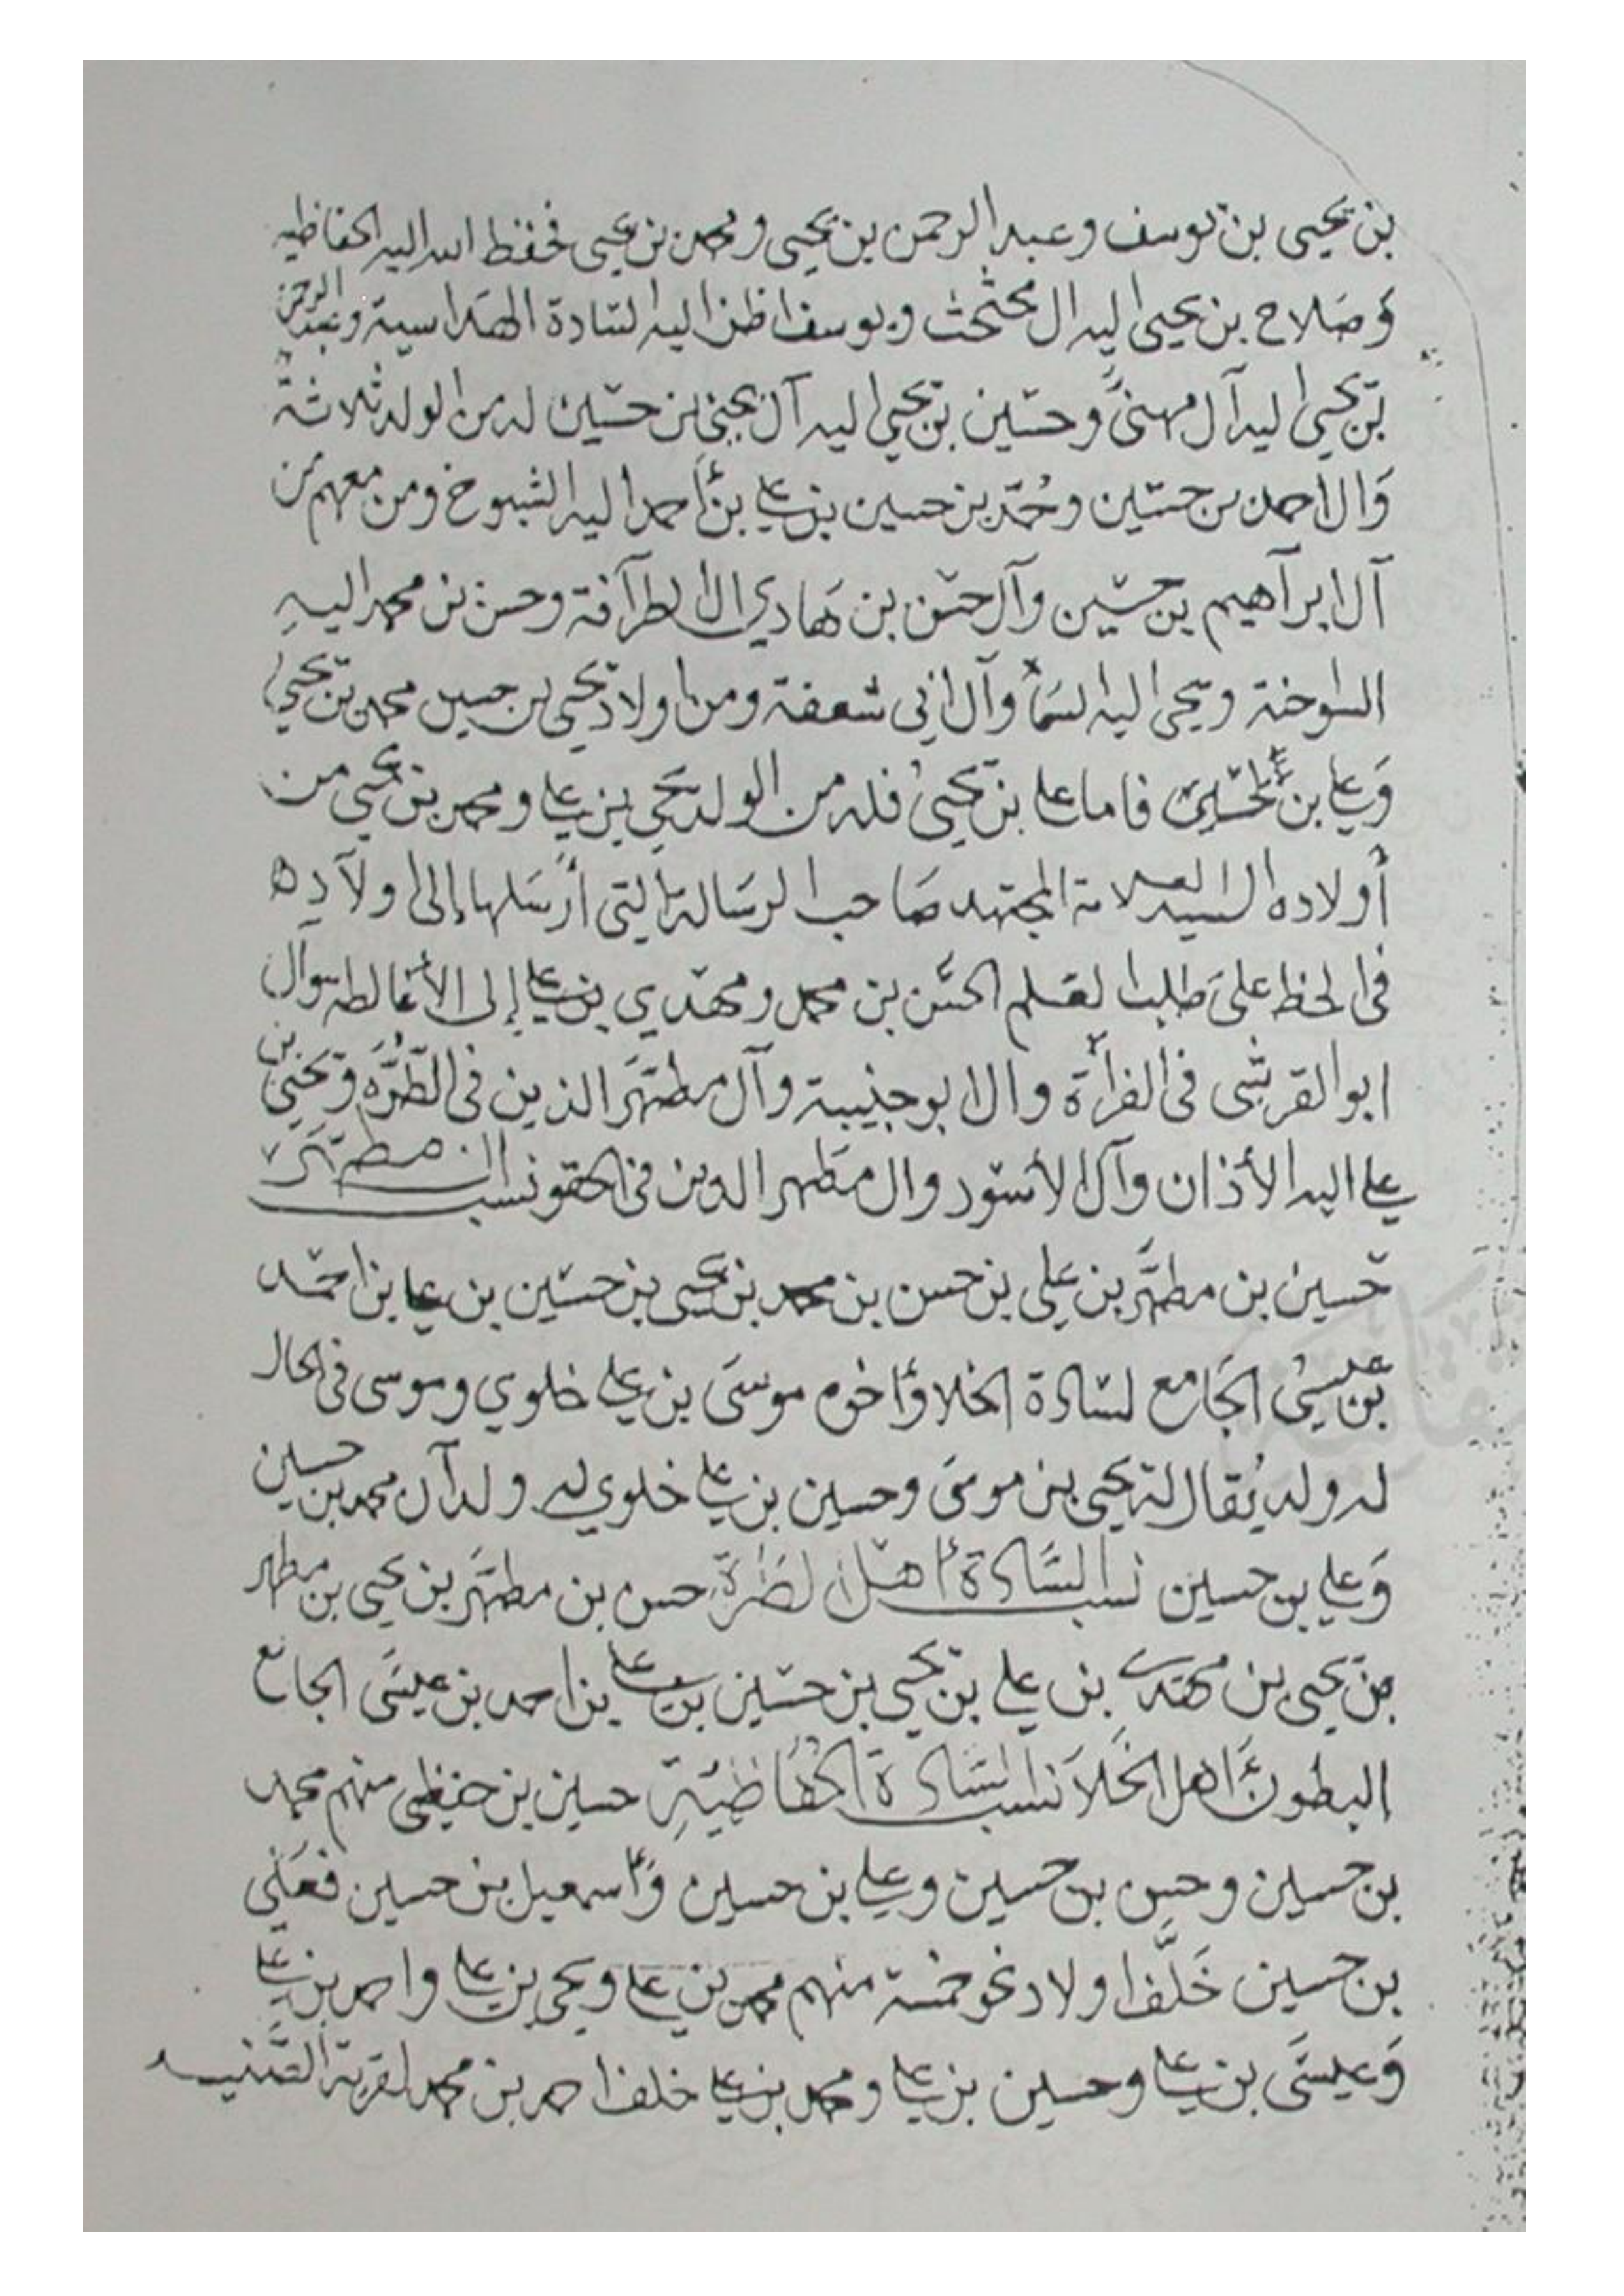 بن يحيى بن يوسف وعبد الرحمن بن يحيى ومحمد بن يحيى فحفظ الله اليه الحفاظيه
وصلاح بن يحيى اليه ال محتحث ويوسف اظن اليه السادة الهداسية وعبد الرحمن
بن يحيى اليه آل مهنى وحسين بن يحيى اليه آل يحيى بن حسين له من الولد ثلاثة
وال احمد بن حسين ومحمد بن حسين بن علي بن أحمد اليه الشيوخ ومن معهم من
آل ابراهيم بن حسين وآل حسن بن هادي ال الطرآفة وحسن بن محمد اليه
السوخنة ويحيى اليه السمأ وآل ابي شعفة ومن اولاد يحيى بن حسين محمد بن يحيى
وعلي بن الحسين فاما علي بن يحيى فله من الولد يحيى بن علي ومحمد بن يحيى من
أولاده السيد العلامة المجتهد صاحب الرسالة التي أرسلها إلى اولآده
في الحظ على طلب العلم الحسن بن محمد ومهدي بن علي إلى الأغالطه وآل
ابو القرشي في الفرأة وال ابو جنيبة وآل مطهر الذين في الطرة ويحيى بن
علي اليه الأذان وآل الأسود وال مطهر الذين في الحقو نسب ال مطهر
حسين بن مطهر بن علي بن حسن بن محمد بن يحيى بن حسين بن علي بن احمد
بن عيسى الجامع لسادة الخلا وأخوه موسى بن علي خلوي وموسى في الحال
له ولد يقال له يحيى بن موسى وحسين بن علي خلوي له ولدآن محمد بن حسين
وعلي بن حسين نسب السادة أهل الطرة حسن بن مطهر بن يحيى بن مطهر
بن يحيى بن مهدي بن علي بن يحيى بن حسين بن علي بن احمد بن عيسى الجامع
البطون أهل الخلا نسب السادة الحفاظية حسين بن حفظي منهم محمد
بن حسين وحسن بن حسين وعلي بن حسين وأسمعيل بن حسين فعلي
بن حسين خلف اولاد نحو خمسة منهم محمد بن علي ويحيى بن علي واحمد بن علي
وعيسى بن علي وحسين بن علي ومحمد بن علي خلف احمد بن محمد لقرية